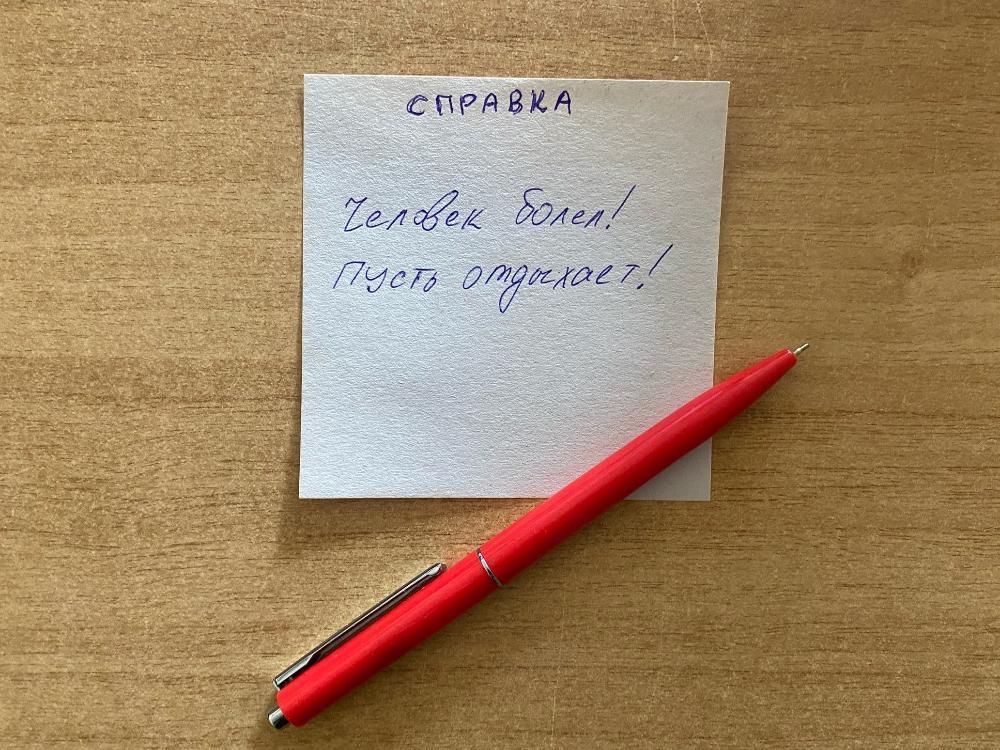 СПРАВКА
Человек болел!
Пусть отдыхает!